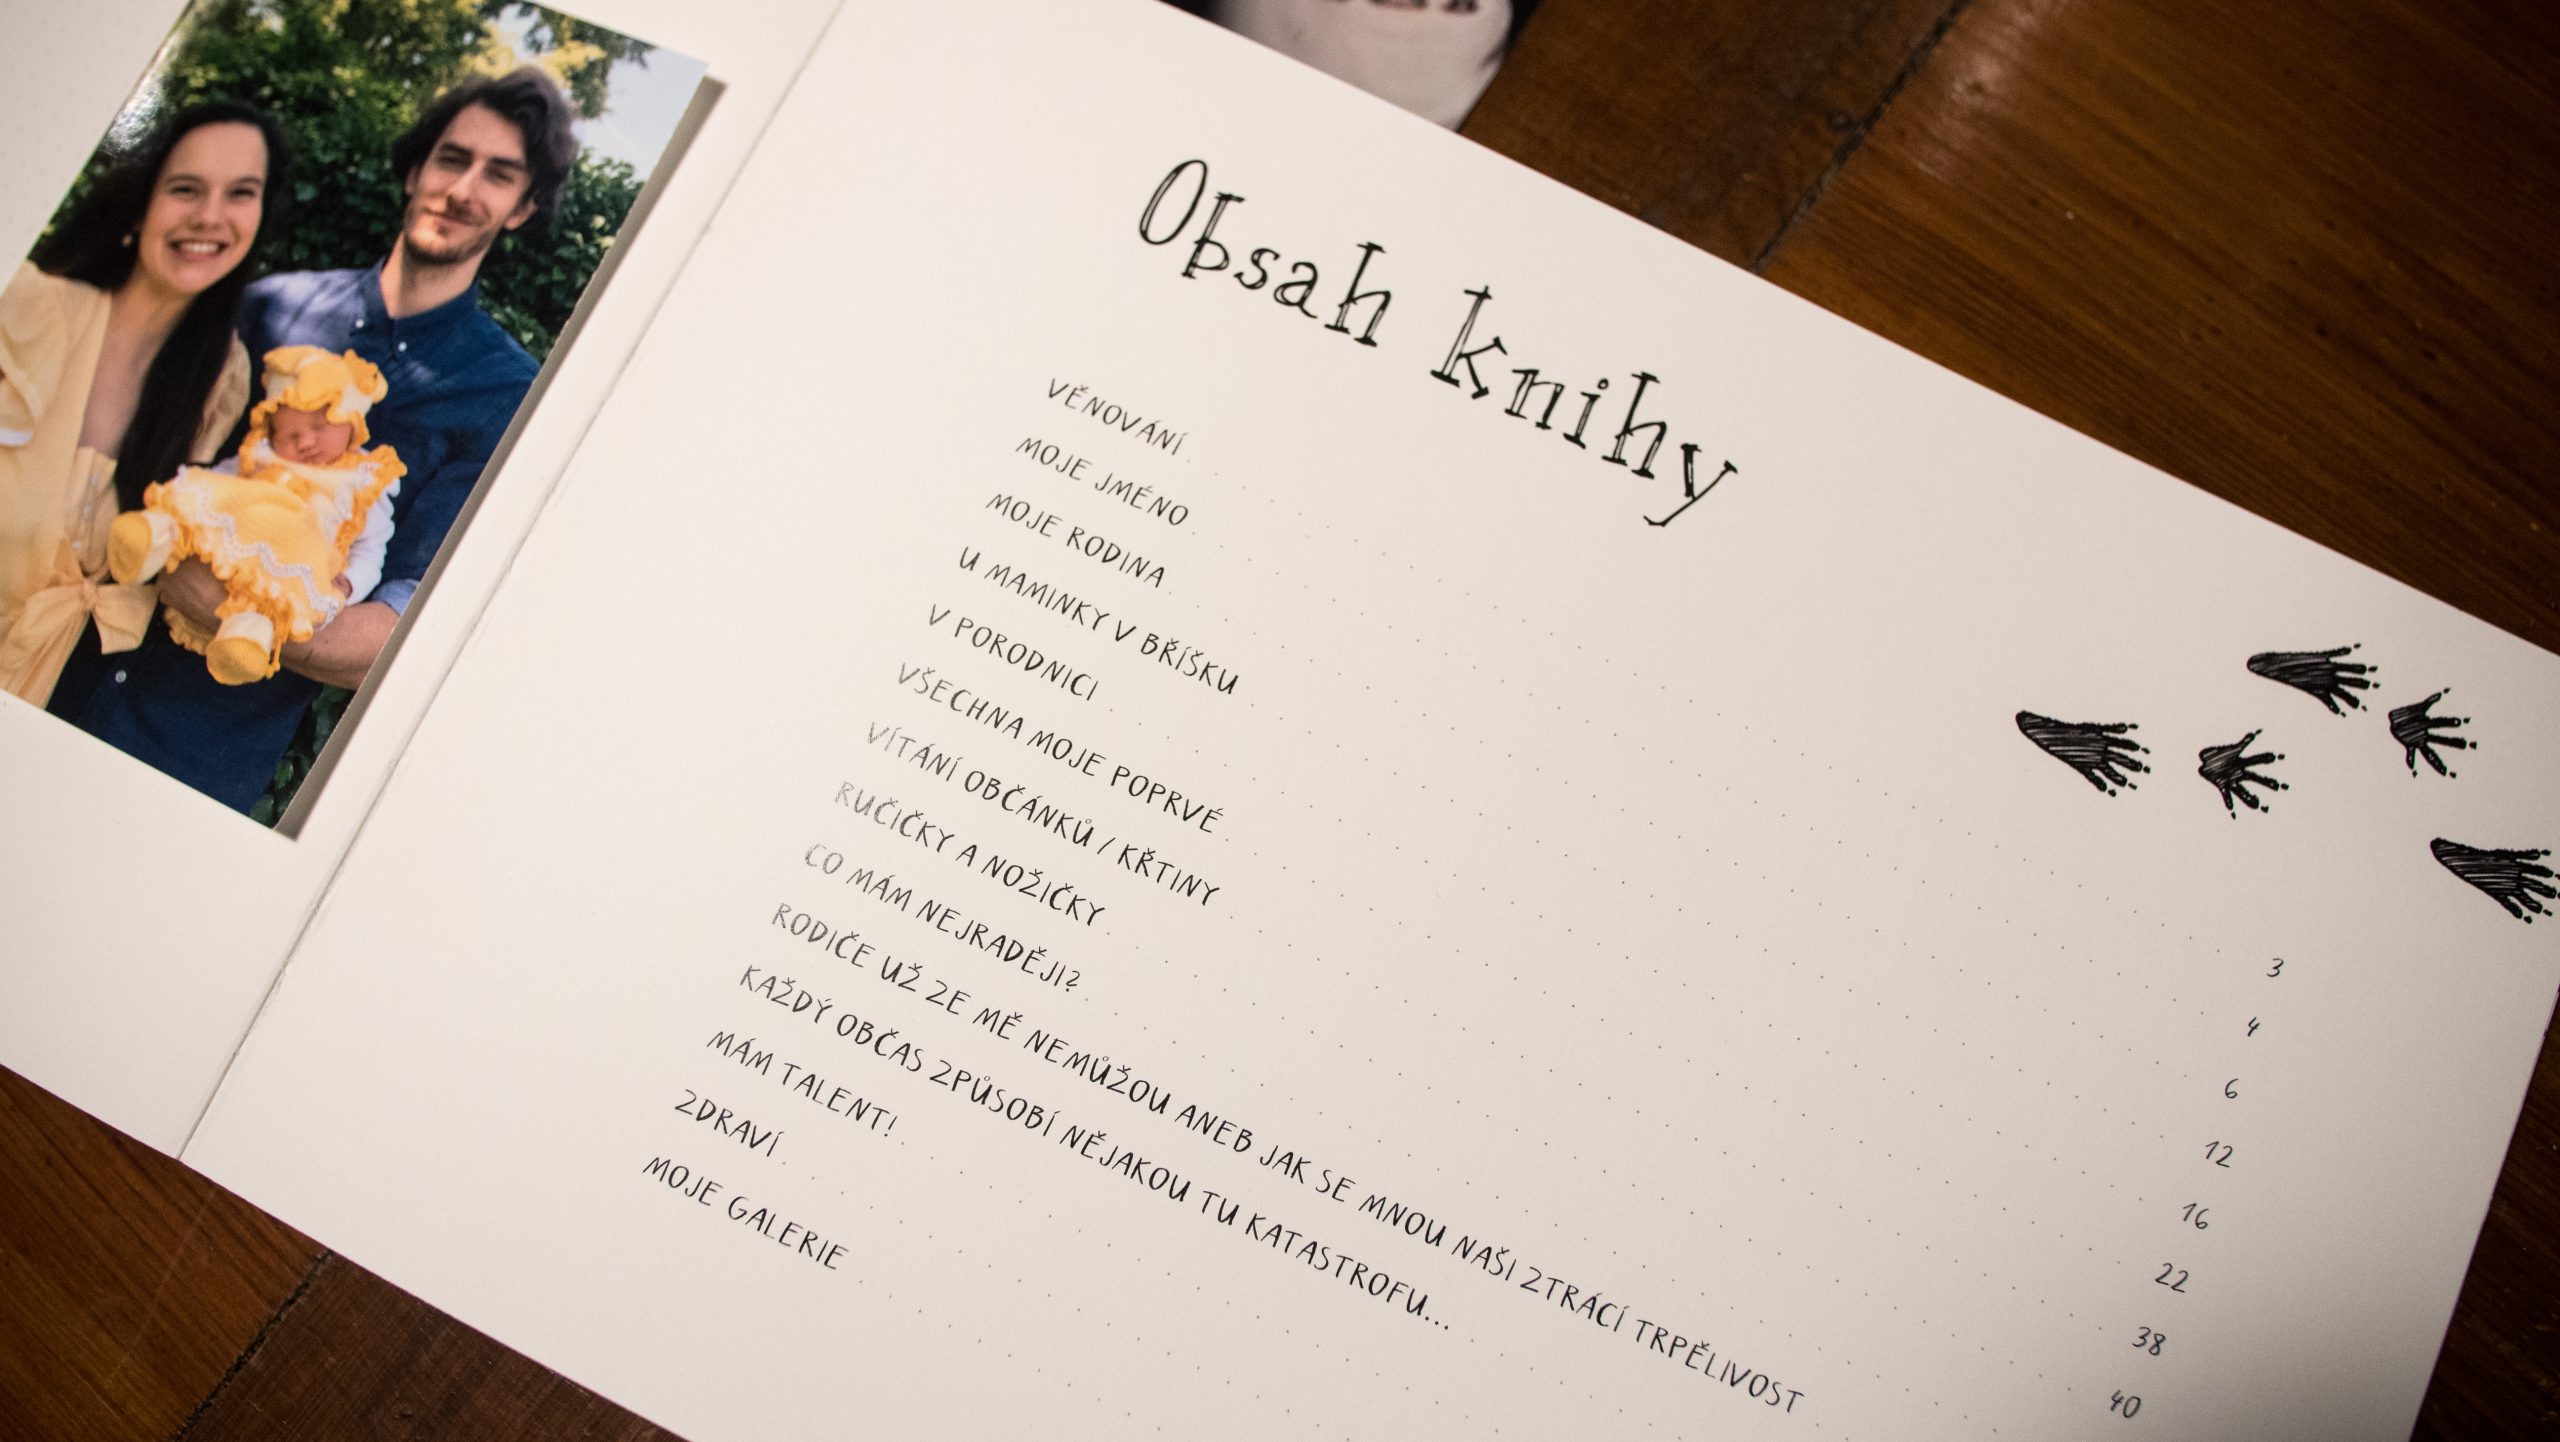 Obsah knihy
VĚNOVÁNÍ 3
MOJE JMÉNO 4
MOJE RODINA 6
U MAMINKY V BŘÍŠKU 12
V PORODNICI 16
VŠECHNA MOJE POPRVÉ 22
VÍTÁNÍ OBČÁNKŮ / KŘTINY 38
RUČIČKY A NOŽIČKY 40
CO MÁM NEJRADĚJI?
RODIČE UŽ ZE MĚ NEMŮŽOU ANEB JAK SE MNOU NAŠI ZTRÁCÍ TRPĚLIVOST
KAŽDÝ OBČAS ZPŮSOBÍ NĚJAKOU TU KATASTROFU...
MÁM TALENT!
ZDRAVÍ
MOJE GALERIE